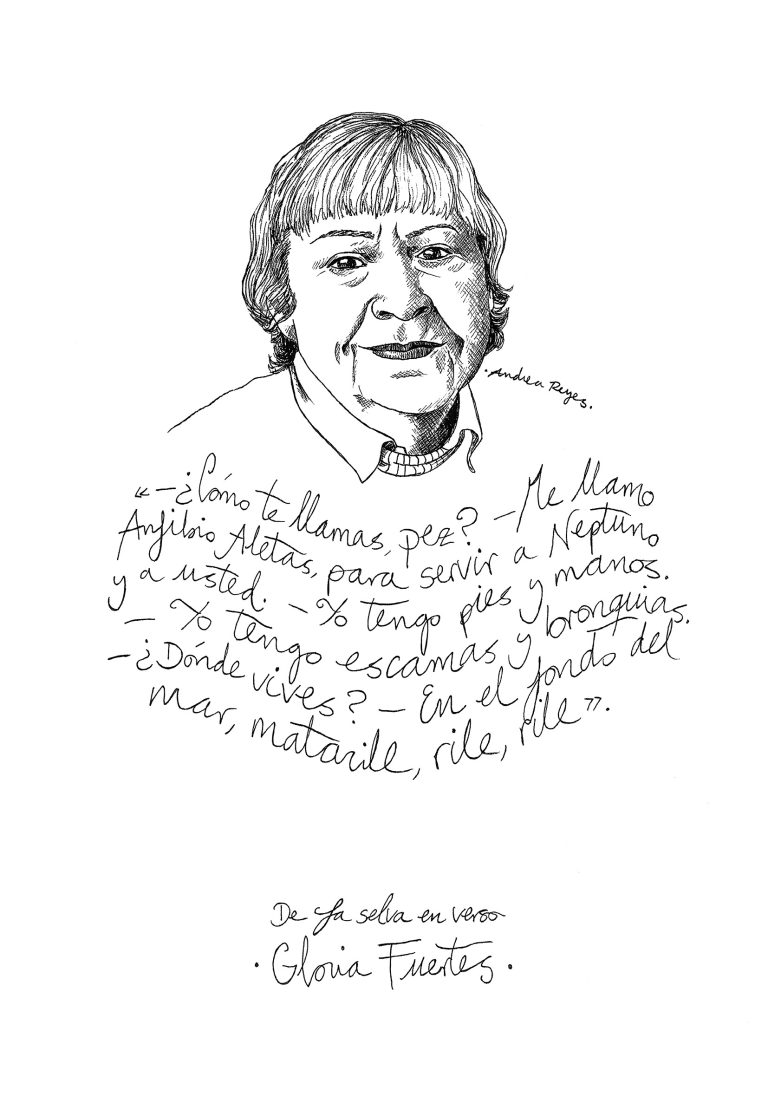 ·Andrea Reyes.
«–¿Cómo te llamas, pez? –Me llamo
Anfibio Aletas, para servir a Neptuno
y a usted. –Yo tengo pies y manos.
– Yo tengo escamas y bronquias.
–¿Dónde vives? – En el fondo del
mar, matarile, rile, rile».
De La selva en verso
·Gloria Fuertes·